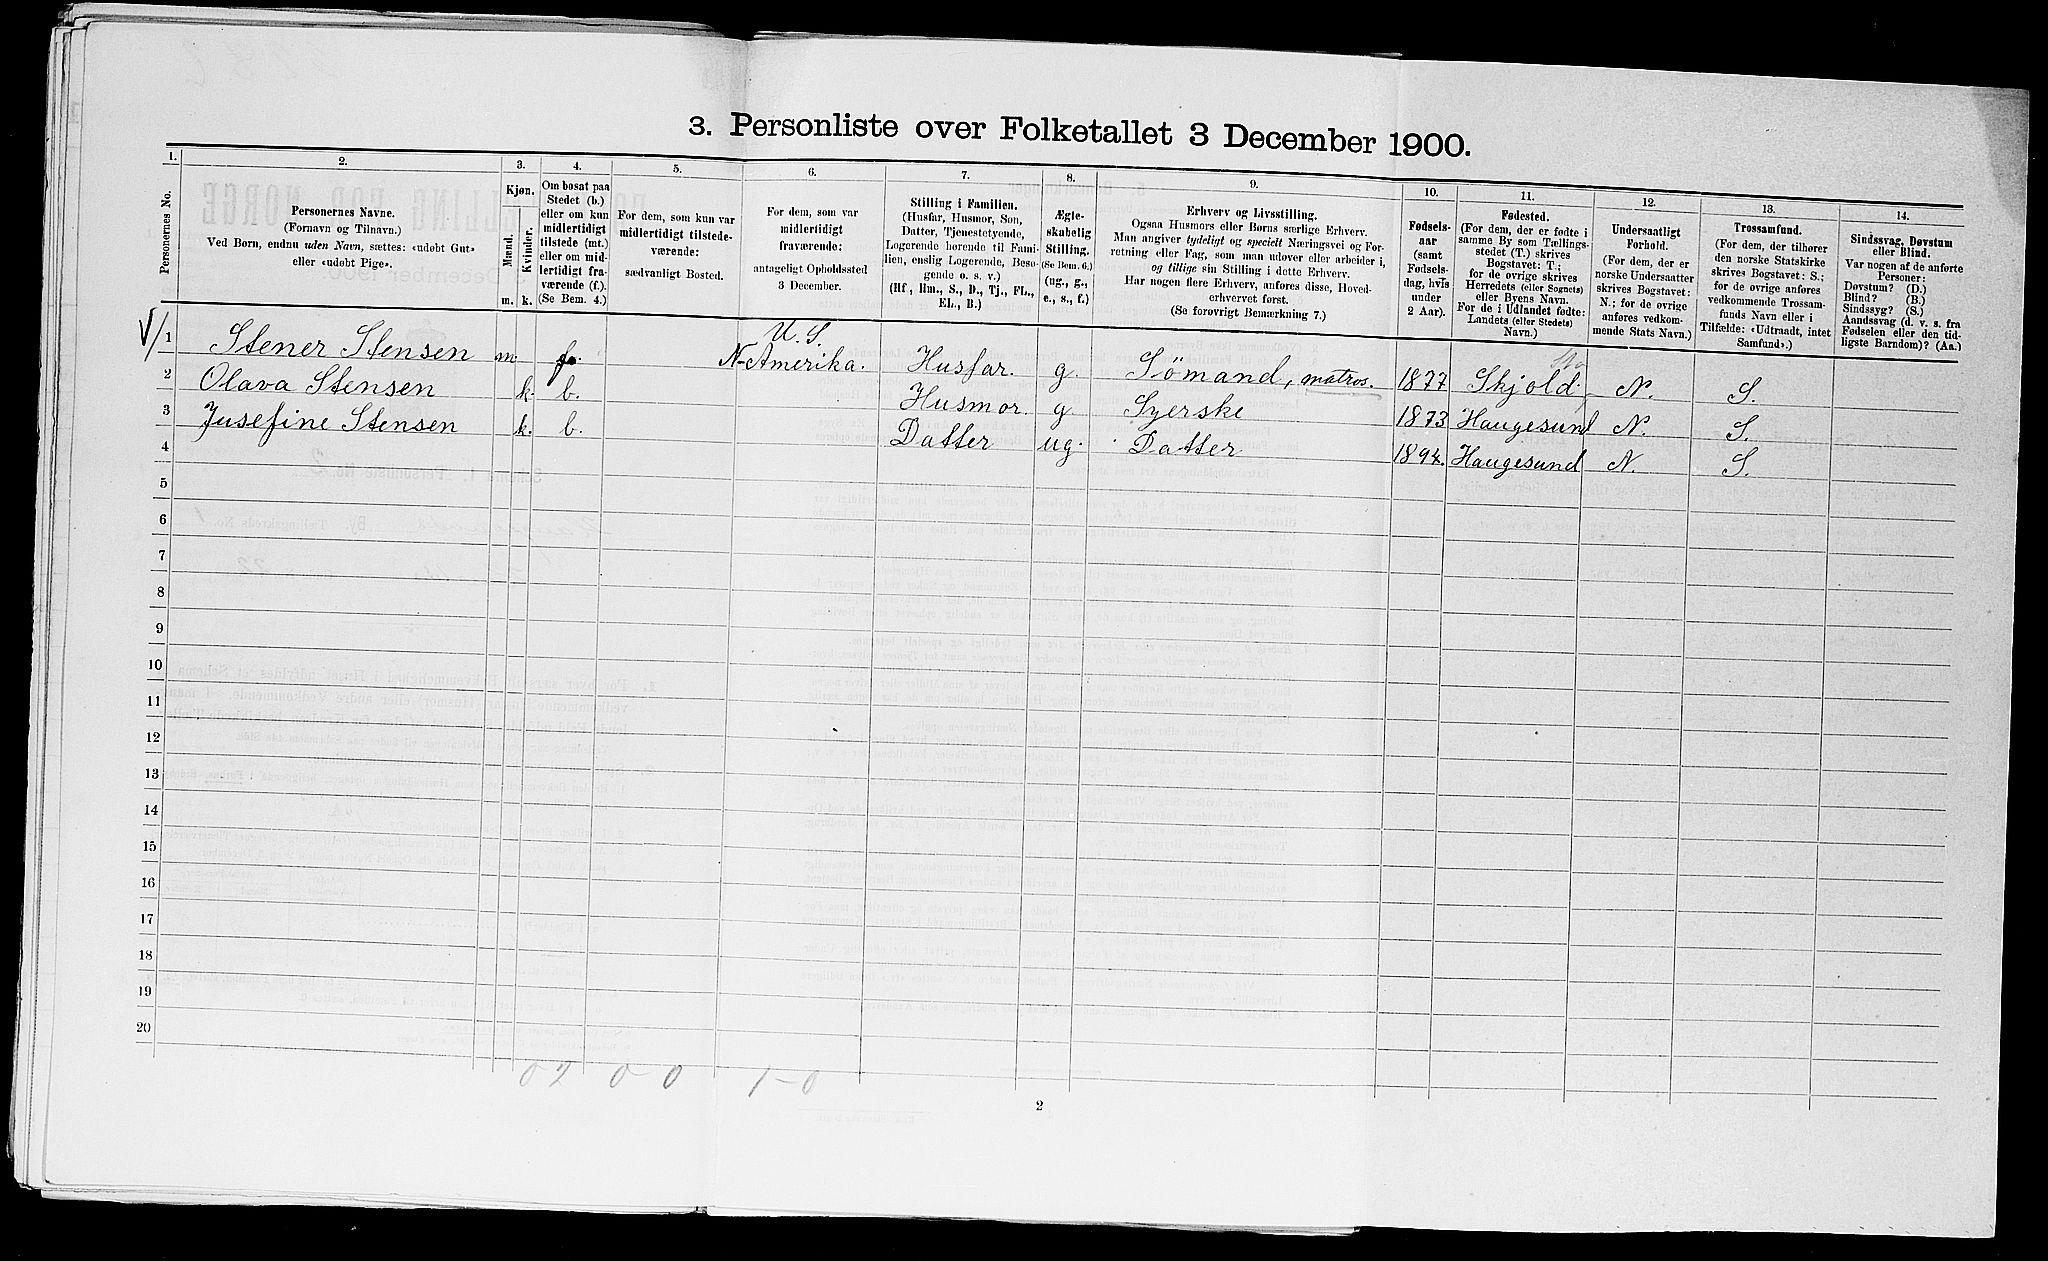 3. Personliste over Folketallet 3 December 1900.
1.
Personernes No.
2.
Personernes Navne.
(Fornavn og Tilnavn).
Ved Børn, endnu uden Navn, sættes: «udøbt Gut»
eller «udøbt Pige».
3.
Kjøn.
Mænd.
Kvinder.
m.
k.
4.
Om bosat paa
Stedet (b.)
eller om kun
midlertidigt
tilstede (mt.)
eller om mid-
lertidigt fra-
værende (f.).
(Se Bem. 4.)
5.
For dem, som kun var
midlertidigt tilstede-
værende:
sædvanligt Bosted.
6.
For dem, som var
midlertidigt
fraværende:
antageligt Opholdssted
3 December.
7.
Stilling i Familien.
(Husfar, Husmor, Søn,
Datter, Tjenestetyende,
Logerende hørende til Fami-
lien, enslig Logerende, Besø-
gende o. s. v.)
(Hf., Hm., S., D., Tj., FL.,
EL., B.)
8.
Ægte-
skabelig
Stilling.
(Se Bem. 6.)
(ug., g.,
e., s., f.)
9.
Erhverv og Livsstilling.
Ogsaa Husmors eller Børns særlige Erhverv.
Man angiver tydeligt og specielt Næringsvei og For-
retning eller Fag, som man udøver eller arbeider i,
og tillige sin Stilling i dette Erhverv.
Har nogen flere Erhverv, anføres disse, Hoved-
erhvervet først.
(Se forøvrigt Bemærkning 7.)
10.
Fødsels-
aar
(samt
Fødsels-
dag, hvis
under
2 Aar).
11.
Fødested.
(For dem, der er fødte i
samme By som Tællings-
stedet (T.) skrives
Bogstavet: T.;
for de øvrige skrives
Herredets (eller Sognets)
eller Byens Navn.
For de i Udlandet fødte:
Landets (eller Stedets)
Navn.)
12.
Undersaatligt
Forhold.
(For dem, der er
norske Undersaatter
skrives Bogstavet:
N.; for de øvrige
anføres vedkom-
mende Stats Navn.)
13.
Trossamfund.
(For dem, der tilhører
den norske Statskirke
skrives Bogstavet: S.;
for de øvrige anføres
vedkommende Trossam-
funds Navn eller i
Tilfælde: «Udtraadt, intet
Samfund».)
14.
Sindssvag, Døvstum
eller Blind.
Var nogen af de anførte
Personer:
Døvstum? (D.)
Blind? (B.)
Sindssyg? (S.)
Aandssvag (d. v. s. fra
Fødselen eller den tid-
ligste Barndom)? (Aa.)
U. S.
1 Stener Stensen m f. N-Amerika. Husfar. g. Sömand, matros. 1877 Skjold. N. S.
2 Olava Stensen k. b. Husmor. g. Syerske 1873 Haugesund N. S.
3 Jusefine Stensen k. b. Datter ug. Datter 1894. Haugesund N. S.
4
5
6
7
8
9
10
11
12
13
14
15
16
17
18
19
20
0 2 0-0 1-0
2